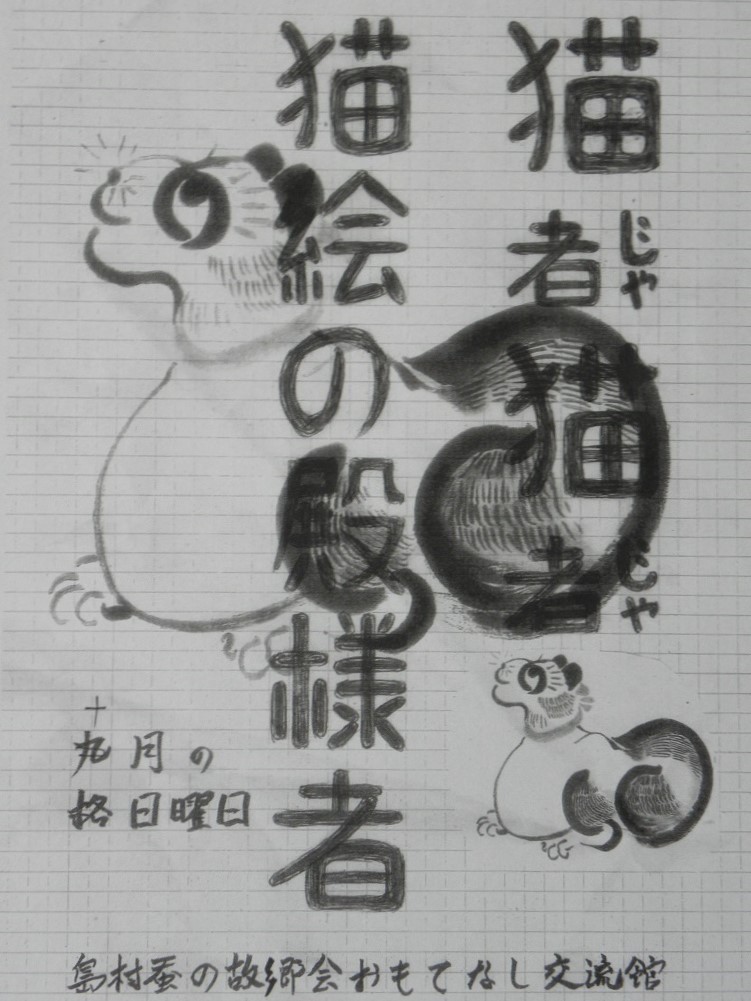 猫者猫者
じゃ
じゃ
猫絵の殿様者
十
九月の
格日曜日
島村蚕の故郷会おもてなし交流館